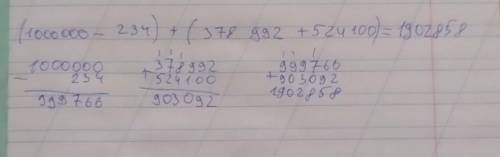 (1000000 - 234) + (378 992 + 524100) = 1902858
1000000
- 234
999766
378992
+524100
903092
999766
+903092
1902858